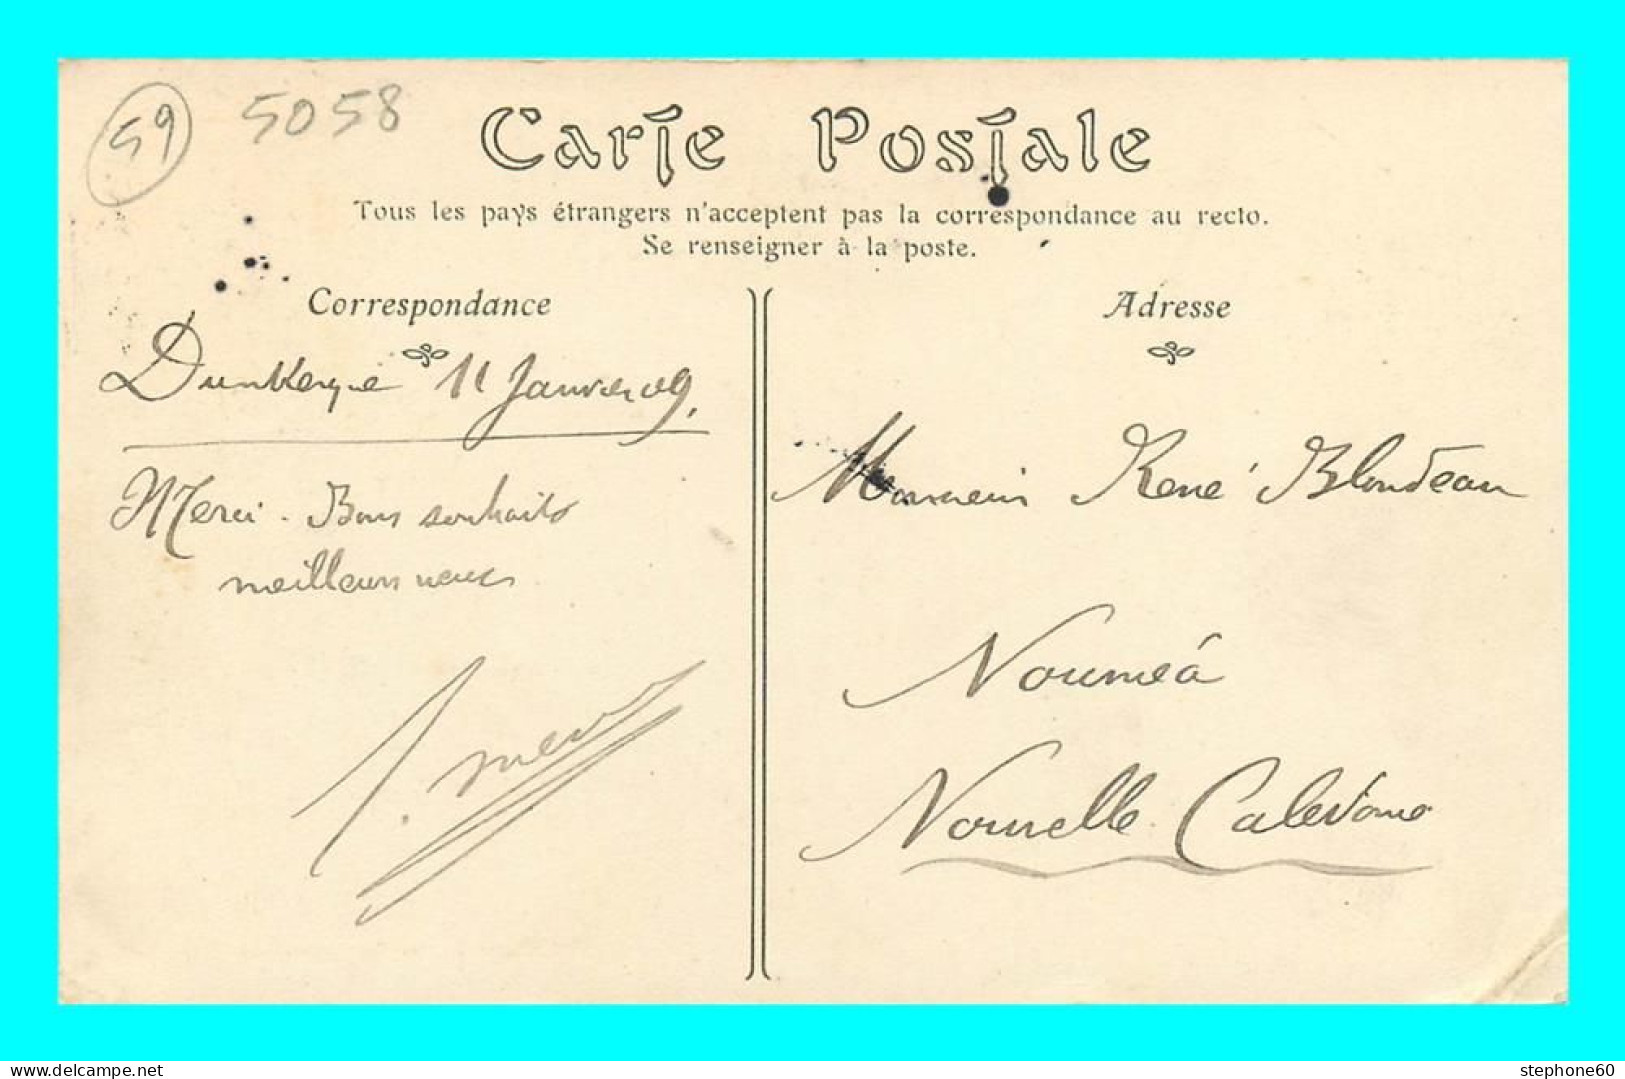 59 5058
Carte Postale
Tous les pays étrangers n'acceptent pas la correspondance au recto.
Se renseigner à la poste.
Correspondance
Dunkerque 11 Janvier 09.
Merci. Bons souhaits
meilleurs vœux
Adresse
Monsieur René Blondeau
Nouméa
Nouvelle Calédonie
delcampe.net
stephone60